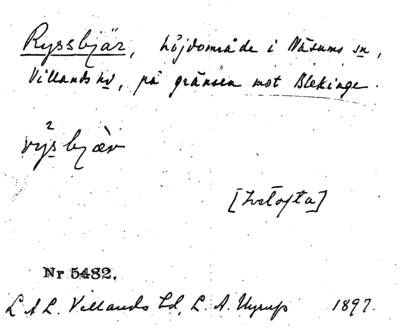 Ryssbjär, höjdområde i Näsums sn,
Villands hd, på gränsen mot Blekinge.
2
rysbjær
Nr 5482.
L A L. Villands hd, L. A. Nyrup 1897.